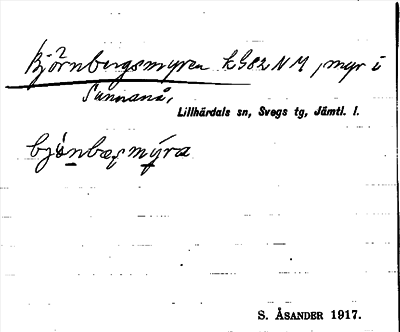 Björnbergsmyren k982 NM, myr i
Sunnanå,
Lillhärdals sn, Svegs tg, Jämtl. l.
S. ÅSANDER 1917.